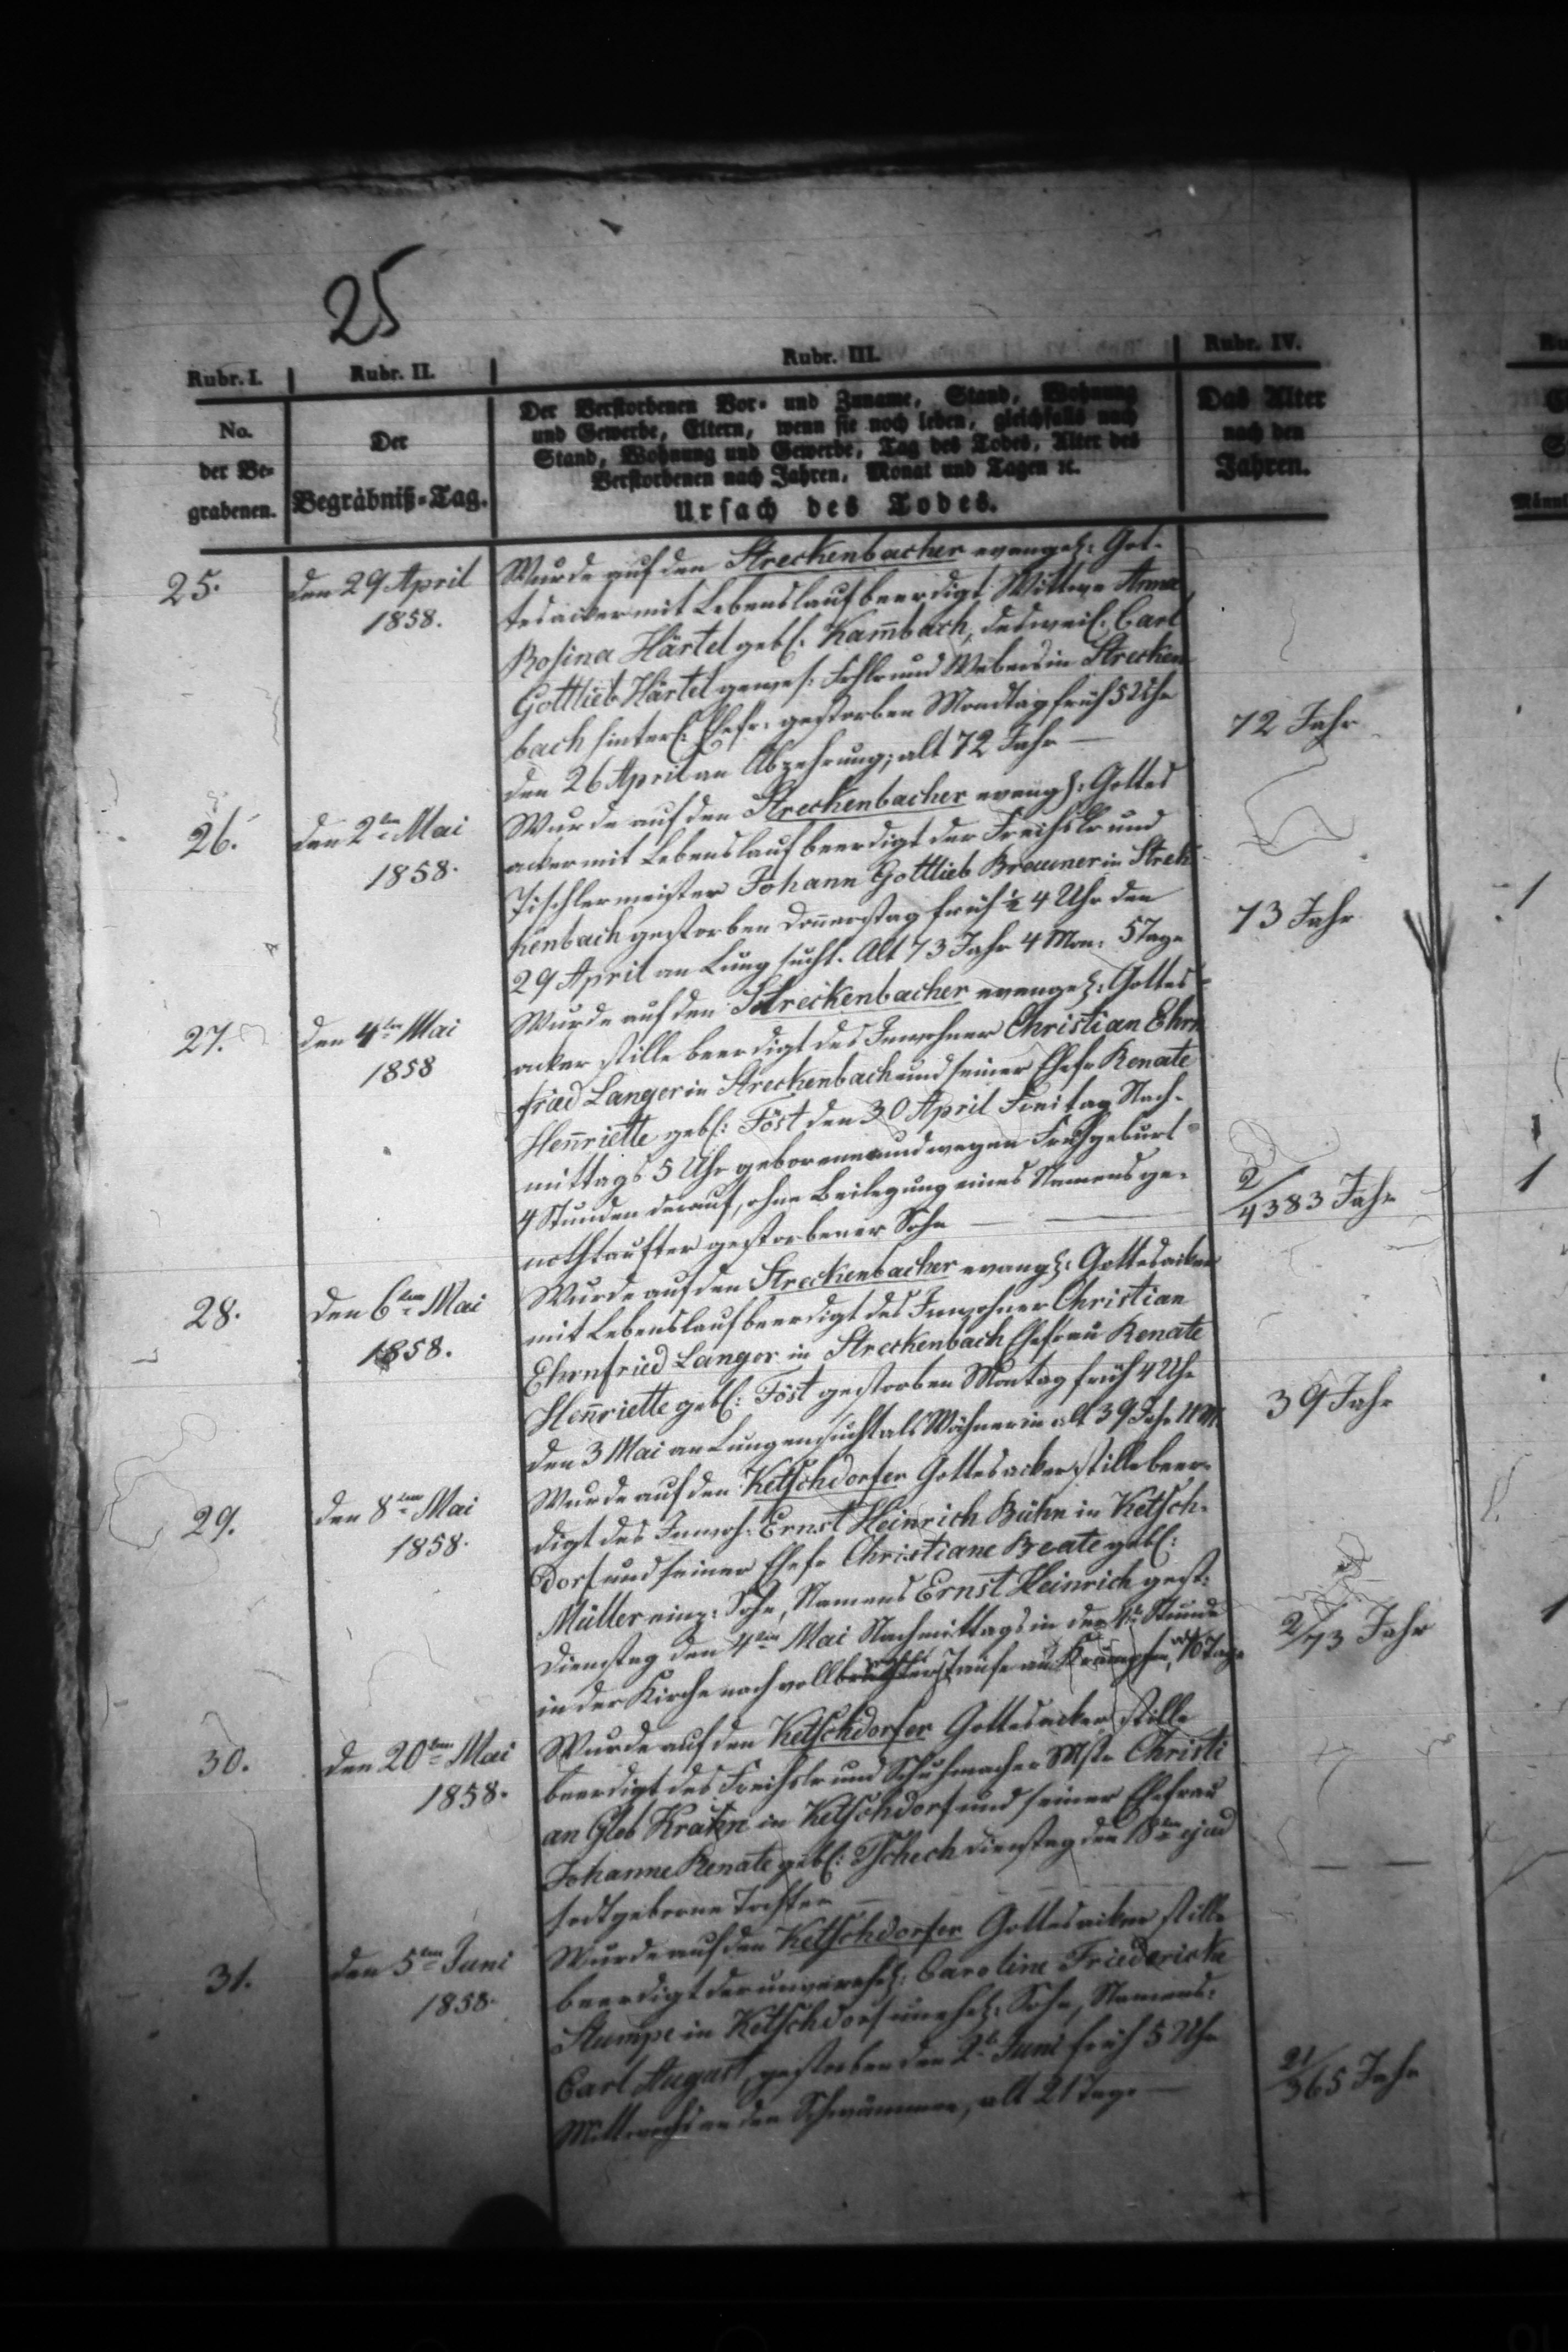 25
Rubr. I. Rubr. II. Rubr. III. Rubr. IV.
No. der Be- grabenen.
Der Begräbniß-Tag.
Der Verstorbenen Vor- und Zuname, Stand, Wohnung
und Gewerbe, Eltern, wenn sie noch leben, gleichfalls nach
Stand, Wohnung und Gewerbe, Tag des Todes, Alter des
Verstorbenen nach Jahren, Monat und Tagen ꝛc.
Ursach des Todes.
Das Alter
nach den
Jahren.
25. den 29 April
1858.
Wurde auf den Streckenbacher evangel: Got-
tesacker mit Lebenslauf beerdigt Wittwe Anna
Rosina Härtel geb: Kam̄bach, des weil: Carl
Gottlieb Härtel gewes: und Webers in Strecken
bach hinterl: Ehefr: gestorben Mondtag früh 5 Uhr
den 26 April an Abzehrung; alt 72 Jahr —
72 Jahr
26. den 2ten Mai
1858.
Wurde auf den Streckenbacher evangl: Gottes
acker mit Lebenslauf beerdigt der Freihslr und
Tischlermeister Johann Gottlieb Brauner in Strek
kenbach gestorben Don̄erstag früh ½ 4 Uhr den
29 April an Lungsucht. Alt 73 Jahr 4 Mon: 5 Tage
73 Jahr
27. den 4ten Mai
1858
Wurde auf den Streckenbacher evangel: Gottes-
acker stille beerdigt des Inwohner Christian Ehrn
fried Langer in Streckenbach und seiner Ehefr Renate
Hen̄riette geb: Föst den 30 April Freitag Nach-
mittags 5 Uhr geborene und wegen Frühgeburt
4 Stunden darauf, ohne Beilegung eines Namens ge-
nothtaufter gestorbener Sohn —
2/4383 Jahr
28. den 6ten Mai
1858.
Wurde auf den Streckenbacher evangl: Gottesacker
mit Lebenslauf beerdigt des Inwohner Christian
Ehrnfried Langer in Streckenbach Ehefrau Renate
Hen̄riette geb: Föst gestorben Montag früh 4 Uhr
den 3 Mai an Lungensucht als Wöhnerin alt 39 Jahr 11 M.
39 Jahr
29. den 8ten Mai
1858.
Wurde auf den Ketschdorfer Gottesacker stille beer-
digt des Inwoh: Ernst Heinrich Bühn in Ketsch-
dorf und seiner Ehefr Christiane Beate geb:
Müller einz: Sohn, Namens Ernst Heinrich gest:
Dienstag den 4ten Mai Nachmittags in der Stunde
in der Kirche nach vollbrachter Taufe an Krämpfen, alt 10 Tage
2/73 Jahr
30. den 20ten Mai
1858.
Wurde auf den Ketschdorfer Gottesacker stille
beerdigt des Freihslr und Schuhmacher Mstr Christi
an Glob Krahn in Ketschdorf und seiner Ehefrau
Johanne Renate geb: Tschech Dienstag den 18ten ejusd
todtgeborne Tochter —
31. den 5ten Juni
1858.
Wurde auf den Ketschdorfer Gottesacker stille
beerdigt der unverehel: Caroline Friedericke
Stumpe in Ketschdorf unehel: Sohn, Namens:
Carl August, gestorben den 2t Juni früh 5 Uhr
Mittwochs an den Schwämmen, alt 21 Tage —
21/365 Jahr
1
1
1